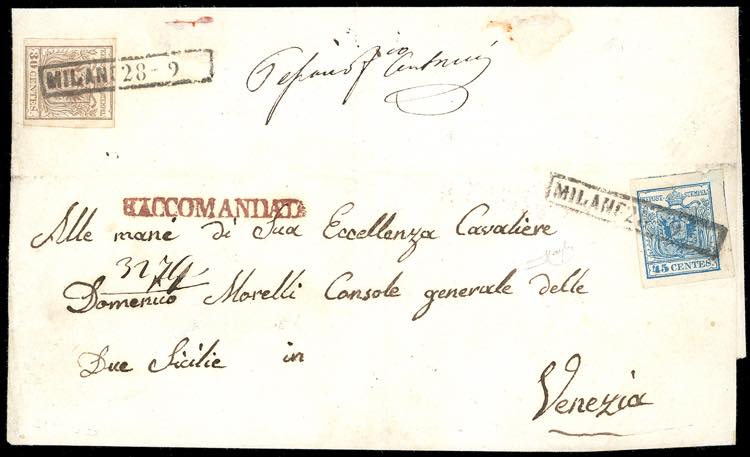 30 CENTES.
MILANO 28-9
RACCOMANDATA
Alle mane di Sua Eccellenza Cavaliere
3279
Domenico Morelli Console generale delle
Due Sicilie in
Venezia
MILANO
45 CENTES.